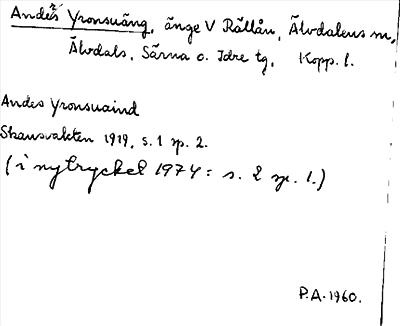 Andes Yronsuäng, änge V Rällån, Älvdalens sn,
Älvdals, Särna o. Idre tg, Kopp. l.
Andes Yronsuaind
Skansvakten 1919, s. 1 sp. 2.
(i nytrycket 1974: s. 2 sp. 1.)
P.A. 1960.